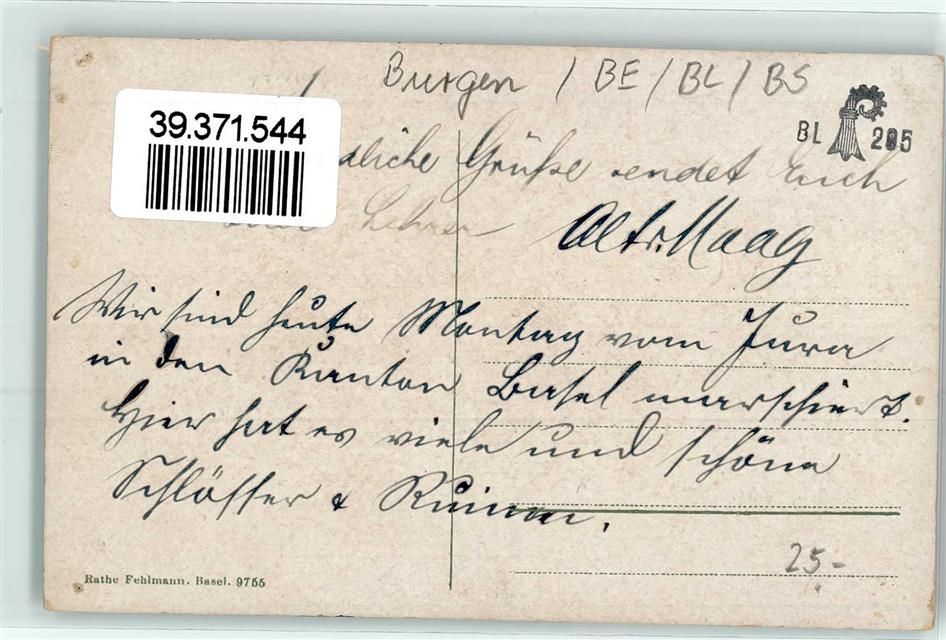 Burgen / BE / BL / BS
39.371.544
BL 205
dliche Grüße sendet Euch
Lehrer
Maag
Wir sind heute Montag vom Jura
in den Kanton Basel marschiert.
Hier hat es viele und schöne
Schlösser & Ruinen.
25-
Rathe Fehlmann. Basel. 9755